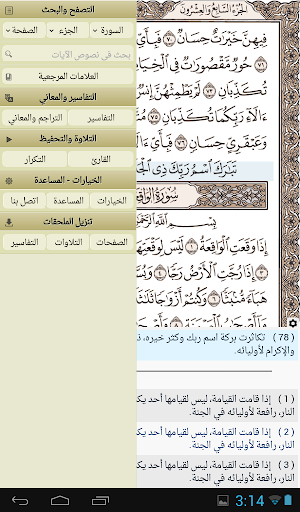 التصفح والبحث
السورة
الجزء
الصفحة
بحث في نصوص الآيات
العلامات المرجعية
التفاسير والمعاني
التفاسير
التراجم والمعاني
التلاوة والتحفيظ
القارئ
التكرار
الخيارات - المساعدة
الخيارات
المساعدة
اتصل بنا
تنزيل الملحقات
الصفحات
التلاوات
التفاسير
الجزء السابع والعشرون
فِيهِنَّ خَيْرَٰتٌ حِسَانٌ ٧٠ فَبِأَيِّ
حُورٌ مَّقْصُورَٰتٌ فِي
تُكَذِّبَانِ ٧٣ لَمْ يَطْمِثْهُنَّ إِنسٌ
ءَالَآءِ رَبِّكُمَا تُكَذِّبَانِ
وَعَبْقَرِيٍّ حِسَانٍ ٧٦ فَبِأَيِّ
تَبَٰرَكَ ٱسْمُ رَبِّكَ ذِي
سُورَةُ
بِسْمِ ٱللَّهِ
إِذَا وَقَعَتِ ٱلْوَاقِعَةُ ١ لَيْسَ لِوَقْعَتِهَا
إِذَا رُجَّتِ ٱلْأَرْضُ
هَبَآءً مُّنۢبَثًّا ٦ وَكُنتُمْ أَزْوَٰجًا
( 78 ) تكاثرت بركة اسم ربك وكثر خيره، ذي
والإكرام لأوليائه.
( 1 ) إذا قامت القيامة، ليس لقيامها أحد يك
النار، رافعة لأوليائه في الجنة.
( 2 ) إذا قامت القيامة، ليس لقيامها أحد يك
النار، رافعة لأوليائه في الجنة.
( 3 ) إذا قامت القيامة، ليس لقيامها أحد يك
النار، رافعة لأوليائه في الجنة.
3:14